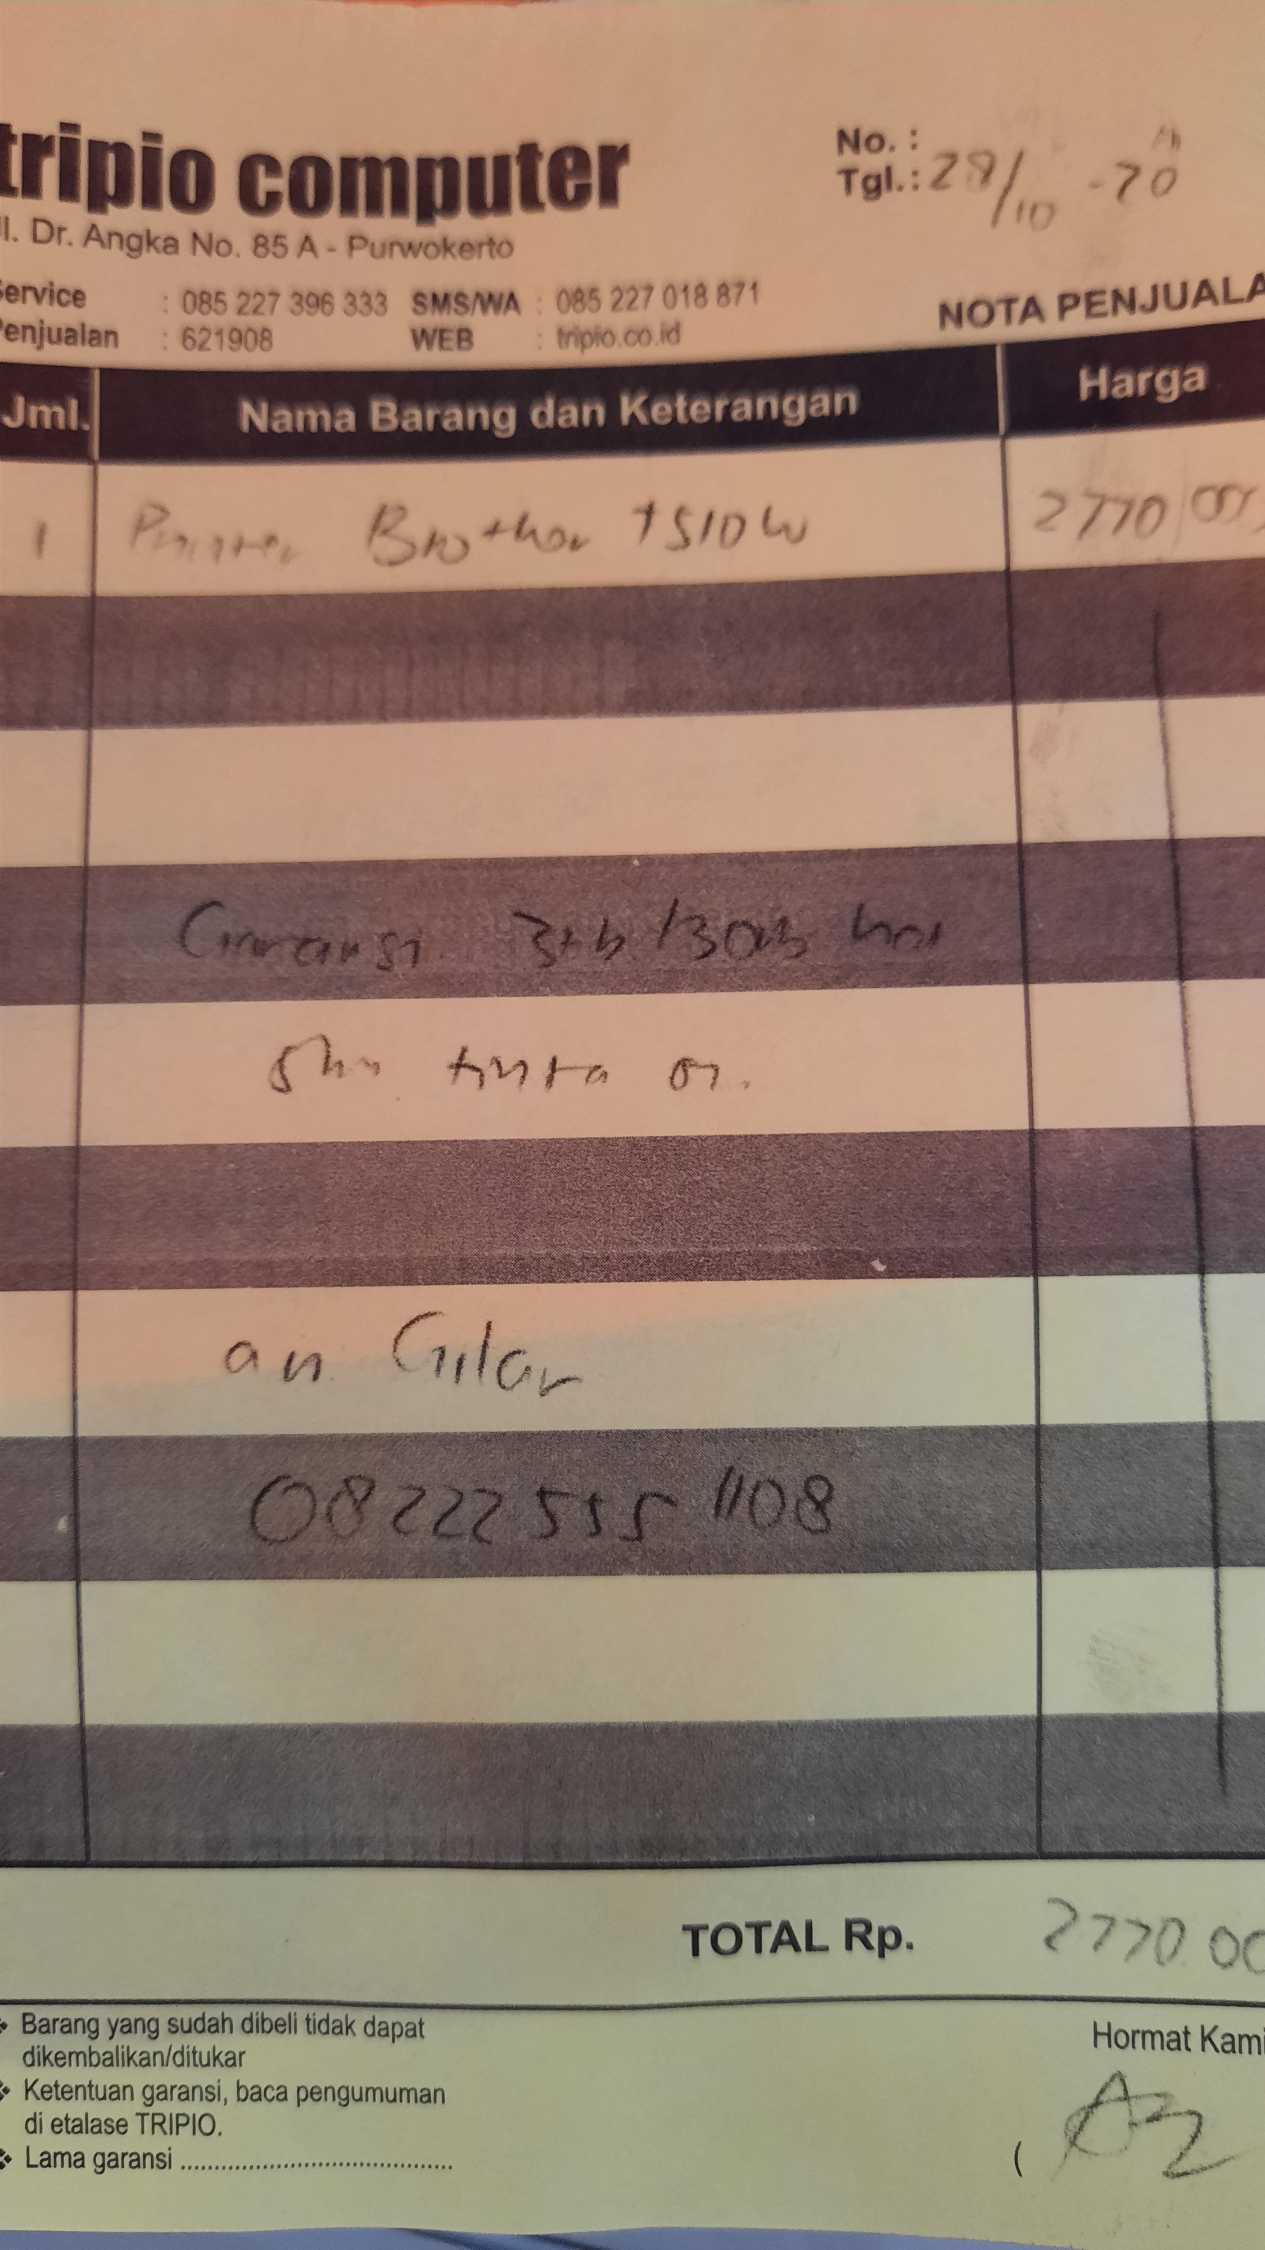 tripio computer
Jl. Dr. Angka No. 85 A - Purwokerto
Service : 085 227 396 333 SMS/WA : 085 227 018 871
Penjualan : 621908 WEB : tripio.co.id
No. :
Tgl.: 28/10 - 20
NOTA PENJUALA
Jml. Nama Barang dan Keterangan Harga
1 Printer Brother T510W 2770
Garansi hari
tinta
an Gilar
08222555 1108
TOTAL Rp. 2770.00
Barang yang sudah dibeli tidak dapat
dikembalikan/ditukar
Ketentuan garansi, baca pengumuman
di etalase TRIPIO.
Lama garansi ........................................
Hormat Kami
(